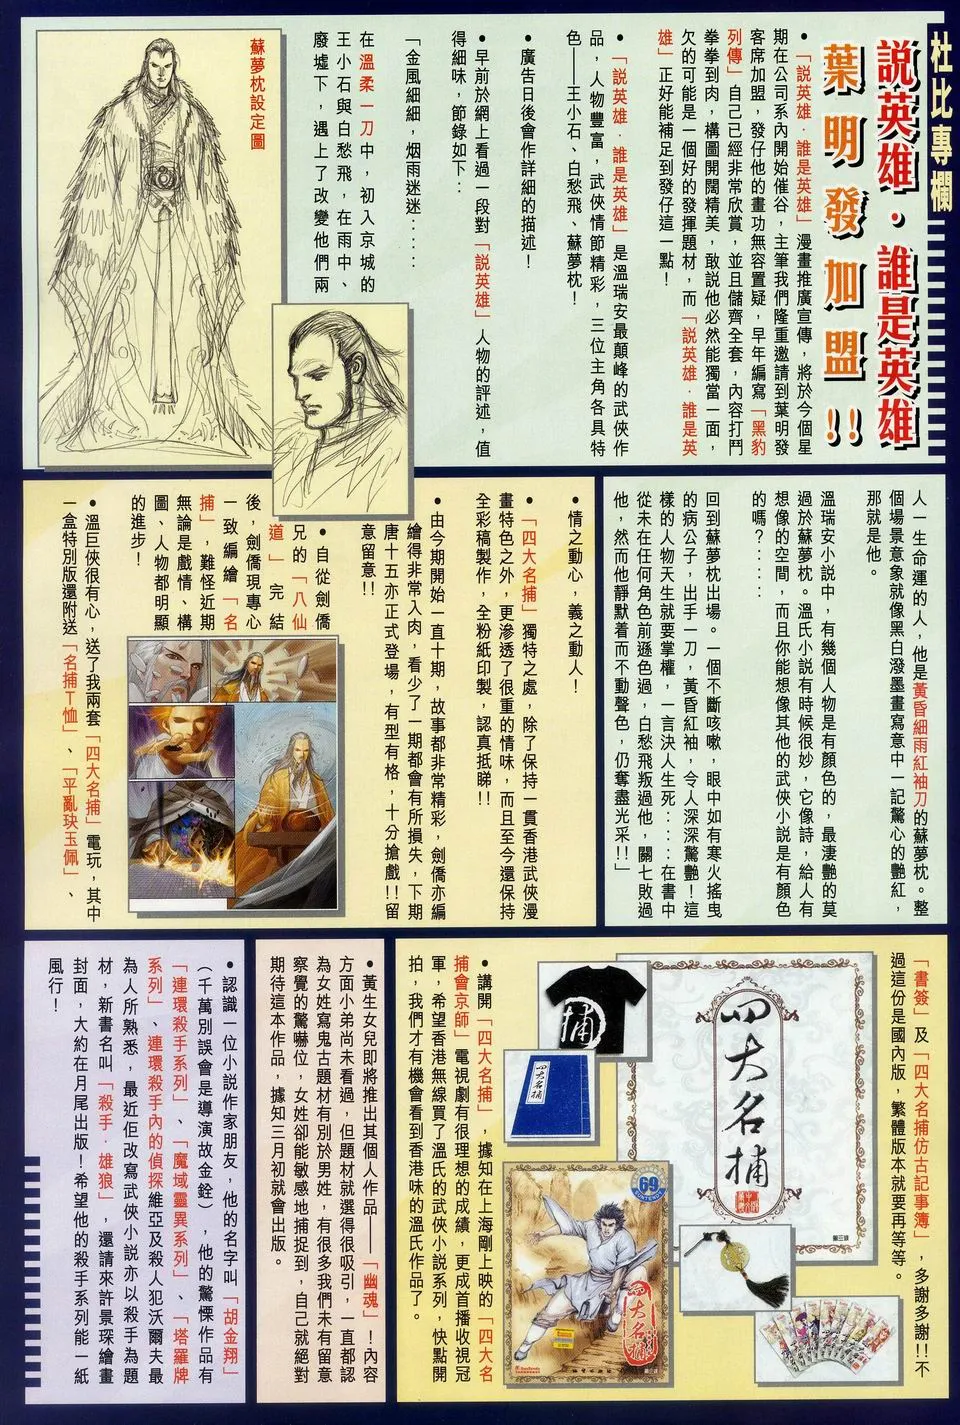 杜比專欄
說英雄．誰是英雄
葉明發加盟!!
●「說英雄．誰是英雄」漫畫推廣宣傳，將於今個星
期在公司系內開始催谷，主筆我們隆重邀請到葉明發
客席加盟，發仔他的畫功無容置疑，早年編寫「黑豹
列傳」自己已經非常欣賞，並且儲齊全套，內容打鬥
拳拳到肉，構圖開闊精美，敢說他必然能獨當一面，
欠的可能是一個好的發揮題材，而「說英雄．誰是英
雄」正好能補足到發仔這一點！
●「說英雄．誰是英雄」是溫瑞安最顛峰的武俠作
品，人物豐富，武俠情節精彩，三位主角各具特
色——王小石、白愁飛、蘇夢枕！
●廣告日後會作詳細的描述！
●早前於網上看過一段對「說英雄」人物的評述，值
得細味，節錄如下：
「金風細細，烟雨迷迷：：：
在溫柔一刀中，初入京城的
王小石與白愁飛，在雨中、
廢墟下，遇上了改變他們兩
蘇夢枕設定圖
人一生命運的人，他是黃昏細雨紅袖刀的蘇夢枕。整
個場景意象就像黑白潑墨畫寫意中一記驚心的艷紅，
那就是他。
溫瑞安小說中，有幾個人物是有顏色的，最淒艷的莫
過於蘇夢枕。溫氏小說有時候很妙，它像詩，給人有
想像的空間，而且你能想像其他的武俠小說是有顏色
的嗎？：：：
回到蘇夢枕出場。一個不斷咳嗽，眼中如有寒火搖曳
的病公子，出手一刀，黃昏紅袖，令人深深驚艷！這
樣的人物天生就要掌權，一言決人生死：：：在書中
從未在任何角色前遜色過，白愁飛叛過他，關七敗過
他，然而他靜默着而不動聲色，仍奪盡光采！」
●情之動心，義之動人！
●「四大名捕」獨特之處，除了保持一貫香港武俠漫
畫特色之外，更滲透了很重的情味，而且至今還保持
全彩稿製作，全粉紙印製，認真抵睇!!
●由今期開始一直十期，故事都非常精彩，劍僑亦編
繪得非常入肉，看少了一期都會有所損失，下期
唐十五亦正式登場，有型有格，十分搶戲!!留
意留意!!
●自從劍僑
兄的「八仙
道」完結
後，劍僑現專心
一致編繪「名
捕」，難怪近期
無論是戲情、構
圖、人物都明顯
的進步！
●溫巨俠很有心，送了我兩套「四大名捕」電玩，其中
一盒特別版還附送「名捕T恤」、「平亂玦玉佩」、
「書簽」及「四大名捕仿古記事簿」，多謝多謝!!不
過這份是國內版，繁體版本就要再等等。
四大名捕
第三波
捕
四大名捕
69
四大名捕
第三波
●講開「四大名捕」，據知在上海剛上映的「四大名
捕會京師」電視劇有很理想的成績，更成首播收視冠
軍，希望香港無線買了溫氏的武俠小說系列，快點開
拍，我們才有機會看到香港味的溫氏作品了。
●黃生女兒即將推出其個人作品——「幽魂」！內容
方面小弟尚未看過，但題材就選得很吸引，一直都認
為女姓寫鬼古題材有別於男姓，有很多我們未有留意
察覺的驚嚇位，女姓卻能敏感地捕捉到，自己就絕對
期待這本作品，據知三月初就會出版。
●認識一位小說作家朋友，他的名字叫「胡金翔」
（千萬別誤會是導演故金銓），他的驚慄作品有
「連環殺手系列」、「魔域靈異系列」、「塔羅牌
系列」、連環殺手內的偵探維亞及殺人犯沃爾夫最
為人所熟悉，最近佢改寫武俠小說亦以殺手為題
材，新書名叫「殺手．雄狼」，還請來許景琛繪畫
封面，大約在月尾出版！希望他的殺手系列能一紙
風行！